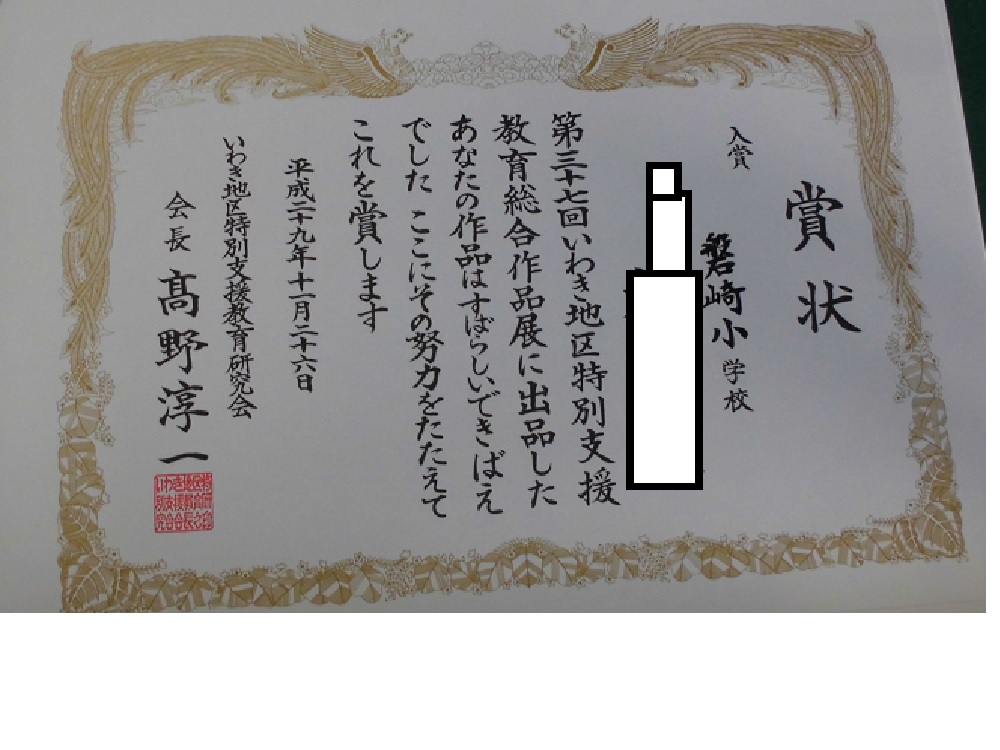 賞状
入賞
磐崎小学校
第三十七回いわき地区特別支援
教育総合作品展に出品した
あなたの作品はすばらしいできばえ
でした ここにその努力をたたえて
これを賞します
平成二十九年十一月二十六日
いわき地区特別支援教育研究会
会長 髙野淳一